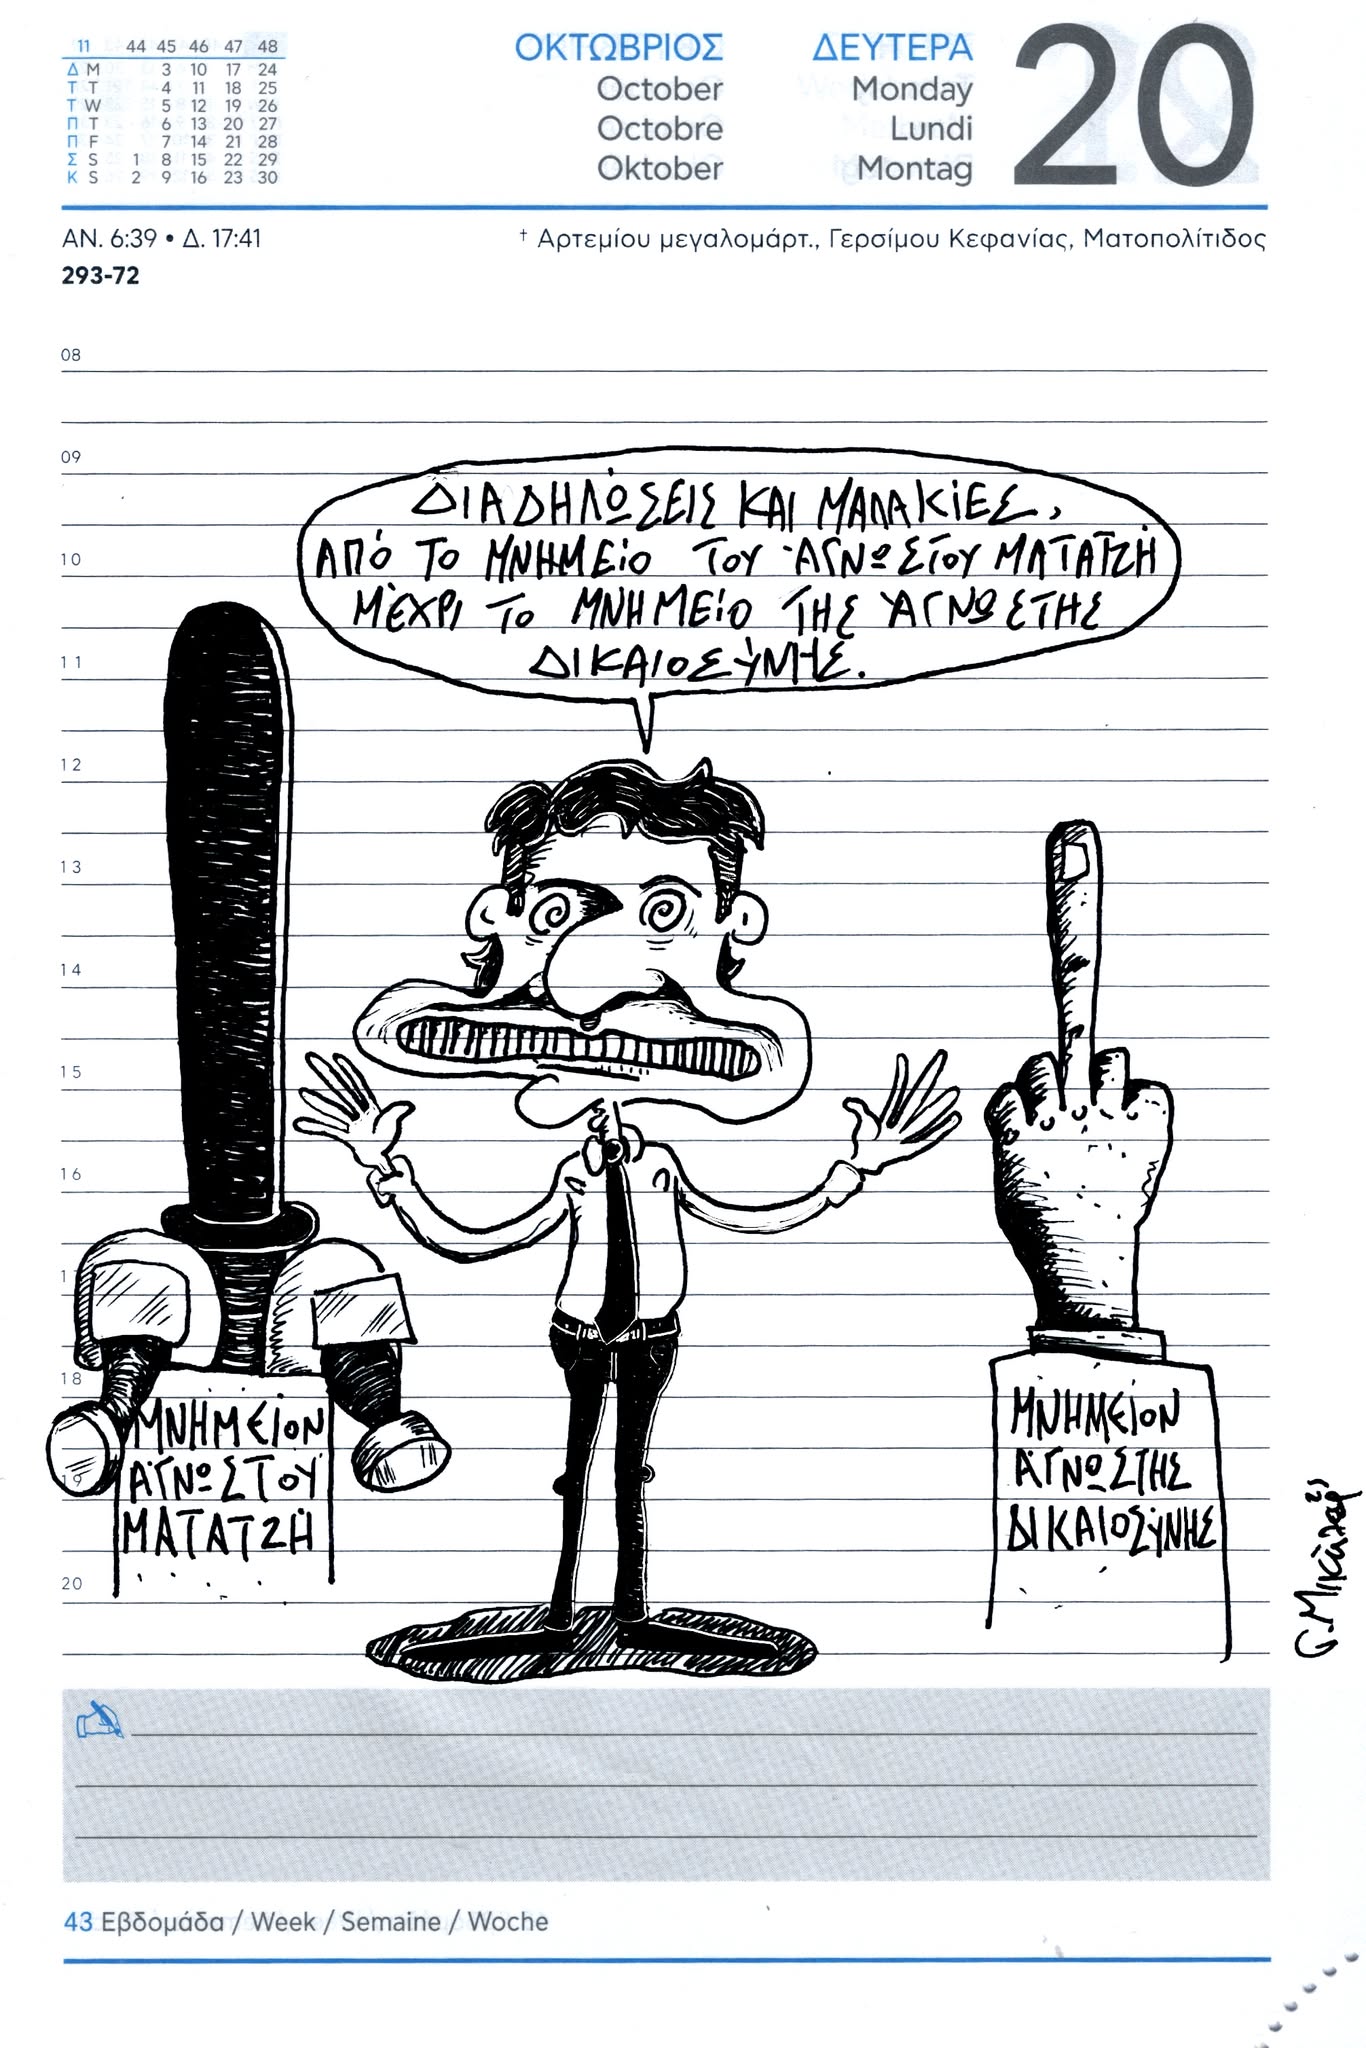 11 44 45 46 47 48
Δ M 3 10 17 24
Τ T 4 11 18 25
Τ W 5 12 19 26
Π T 6 13 20 27
Π F 7 14 21 28
Σ S 1 8 15 22 29
Κ S 2 9 16 23 30
ΟΚΤΩΒΡΙΟΣ ΔΕΥΤΕΡΑ
October Monday
Octobre Lundi
Oktober Montag
20
ΑΝ. 6:39 • Δ. 17:41
† Αρτεμίου μεγαλομάρτ., Γερσίμου Κεφανίας, Ματοπολίτιδος
293-72
08
09
ΔΙΑΔΗΛΏΣΕΙΣ ΚΑΙ ΜΑΛΑΚΊΕΣ,
ΑΠΌ ΤΟ ΜΝΗΜΕΊΟ ΤΟΥ ΆΓΝΩΣΤΟΥ ΜΑΤΑΤΖΉ
ΜΈΧΡΙ ΤΟ ΜΝΗΜΕΊΟ ΤΗΣ ΆΓΝΩΣΤΗΣ
ΔΙΚΑΙΟΣΎΝΗΣ.
10
11
12
13
14
15
16
17
18
19
20
ΜΝΗΜΕΊΟΝ
ΑΓΝΏΣΤΟΥ
ΜΑΤΑΤΖΉ
ΜΝΗΜΕΊΟΝ
ΑΓΝΏΣΤΗΣ
ΔΙΚΑΙΟΣΎΝΗΣ
Γ. Μικάλεφ
43 Εβδομάδα / Week / Semaine / Woche